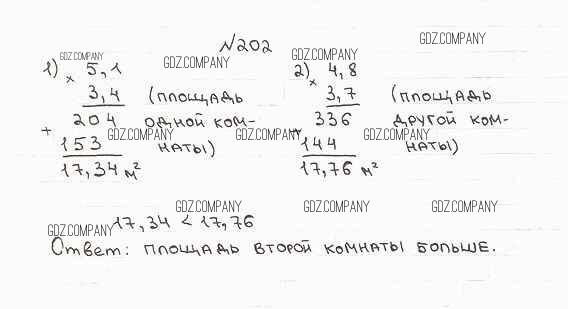 №202
GDZ.COMPANY
GDZ.COMPANY GDZ.COMPANY GDZ.COMPANY
1) × 5,1
3,4 (площадь
204 одной ком-
+ 153 наты)
17,34 м²
2) × 4,8
3,7 (площадь
336 другой ком-
+ 144 наты)
17,76 м²
GDZ.COMPANY GDZ.COMPANY GDZ.COMPANY
GDZ.COMPANY GDZ.COMPANY GDZ.COMPANY
17,34 < 17,76
GDZ.COMPANY
Ответ: площадь второй комнаты больше.